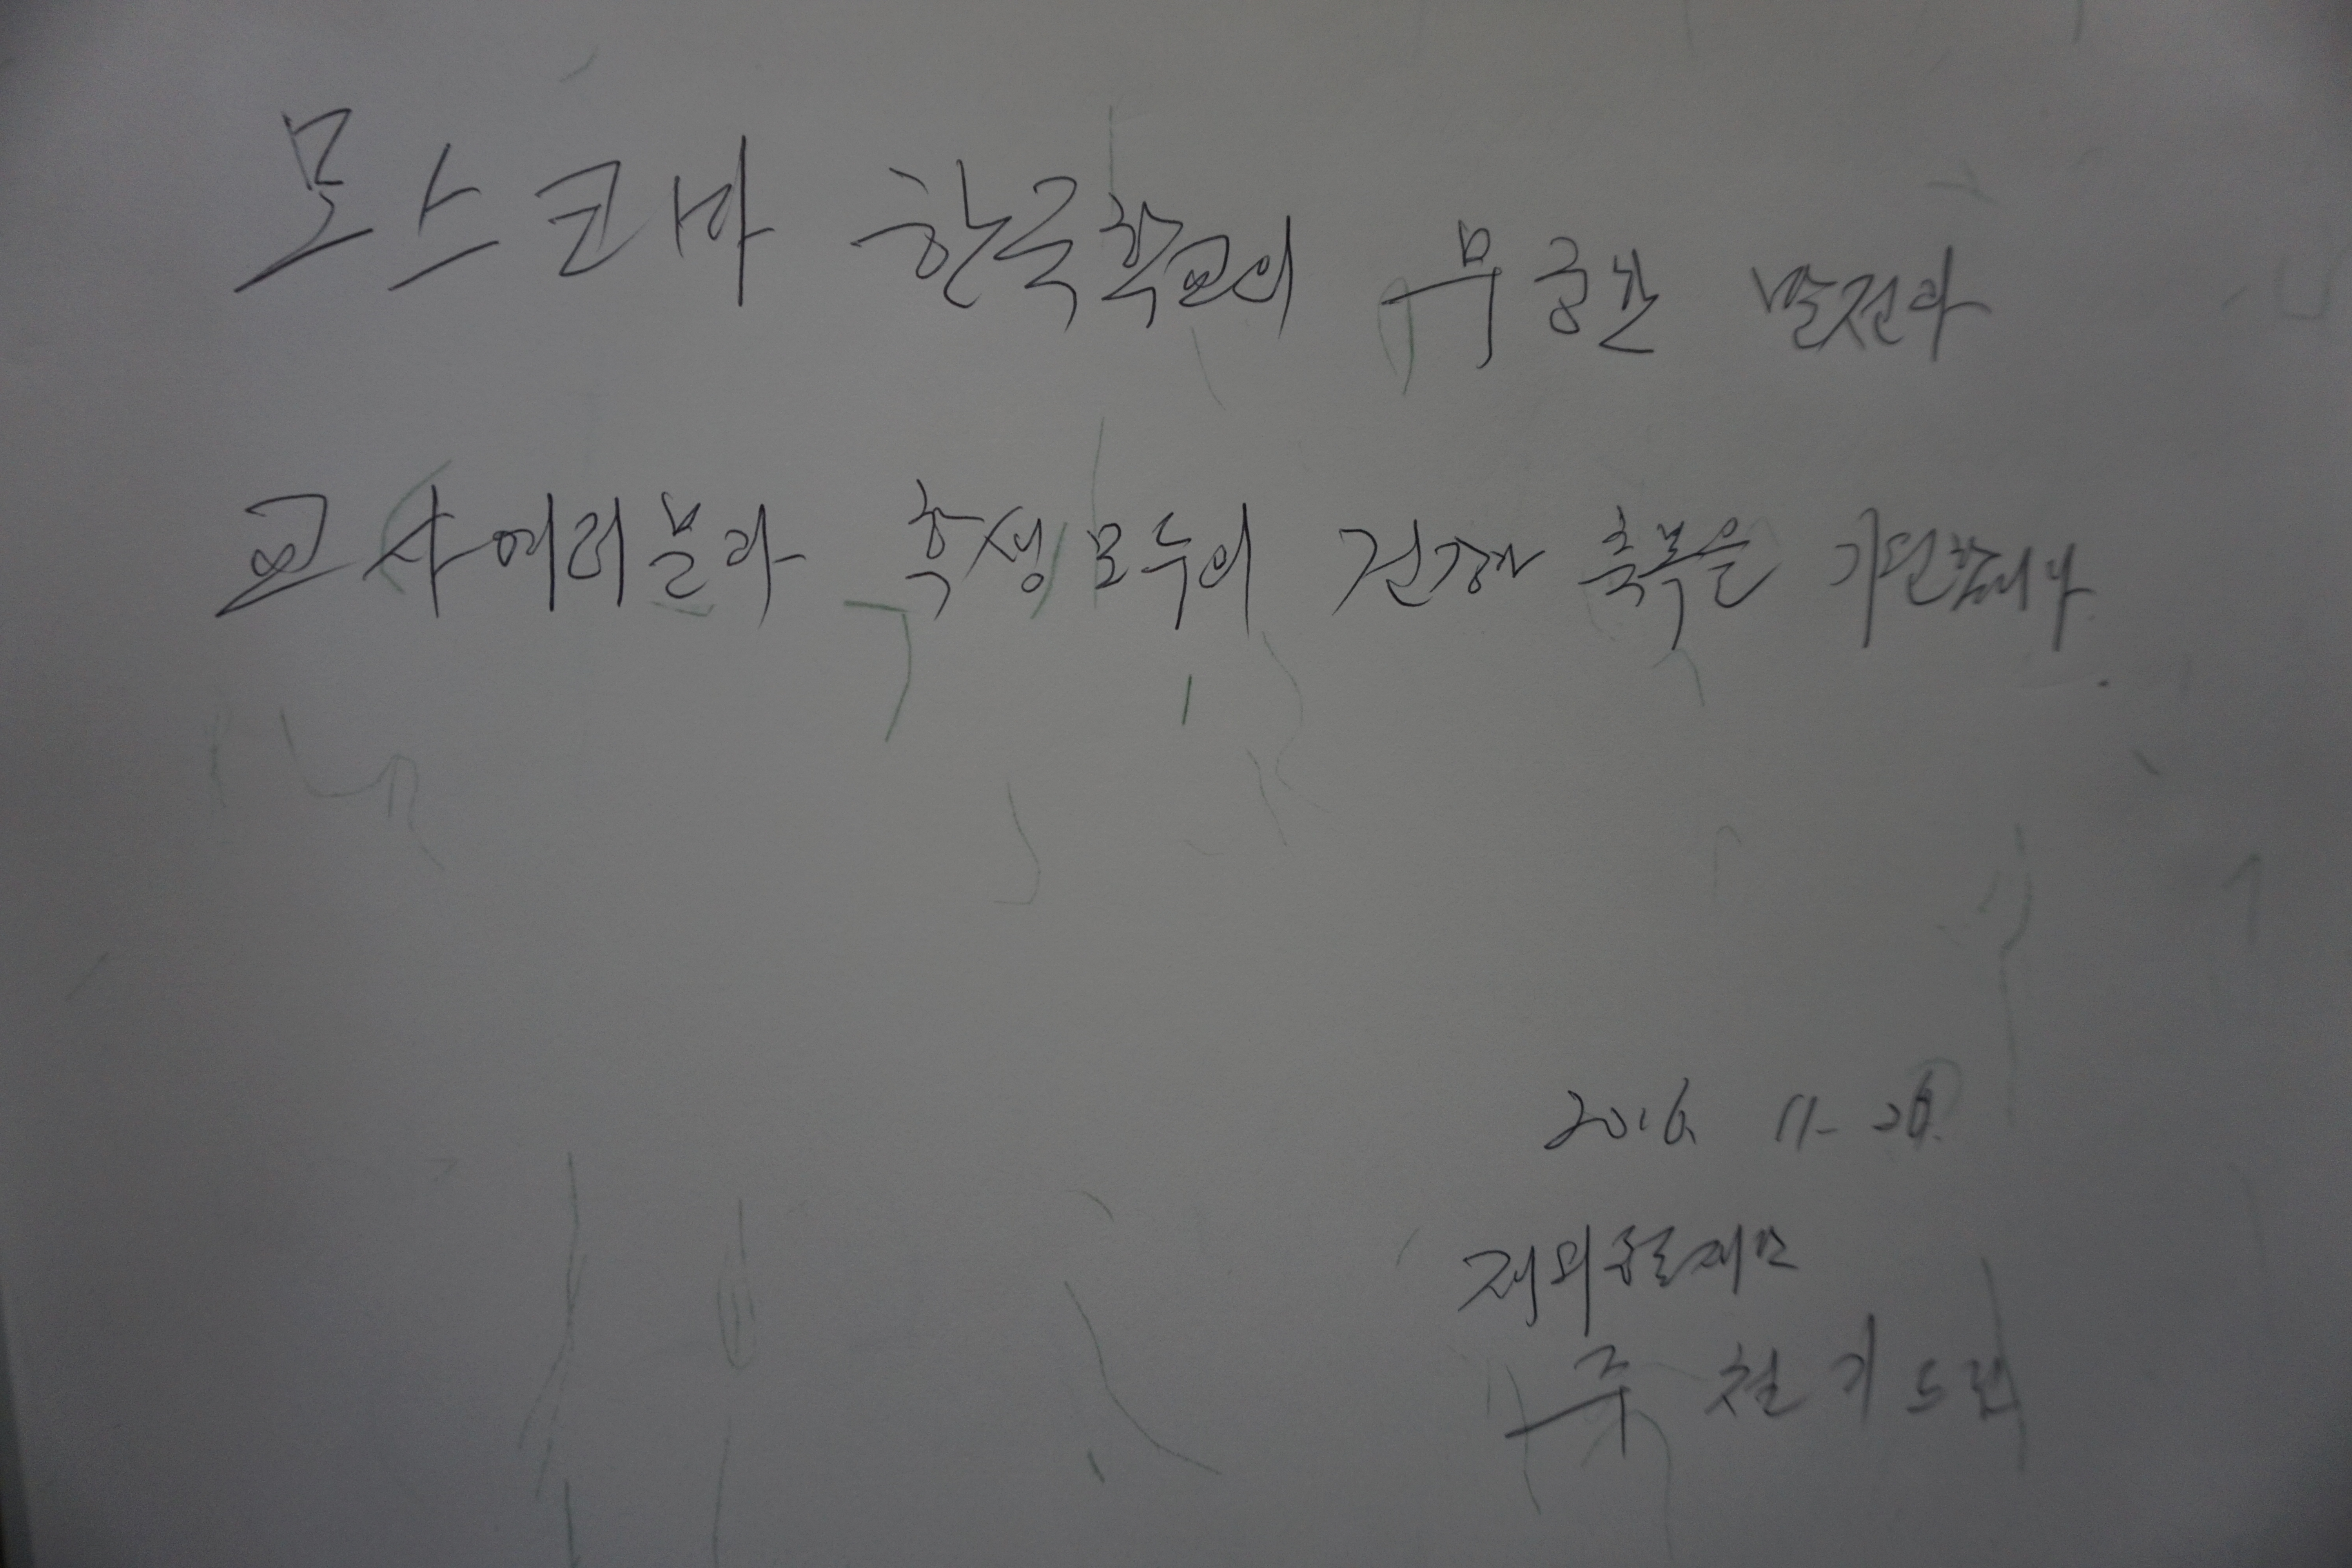 모스크바 한국학교의 무궁한 발전과
교사 여러분과 학생 모두의 건강과 축복을 기원합니다.
2016. 11. 26.
재외동포재단
주 철 기 드림